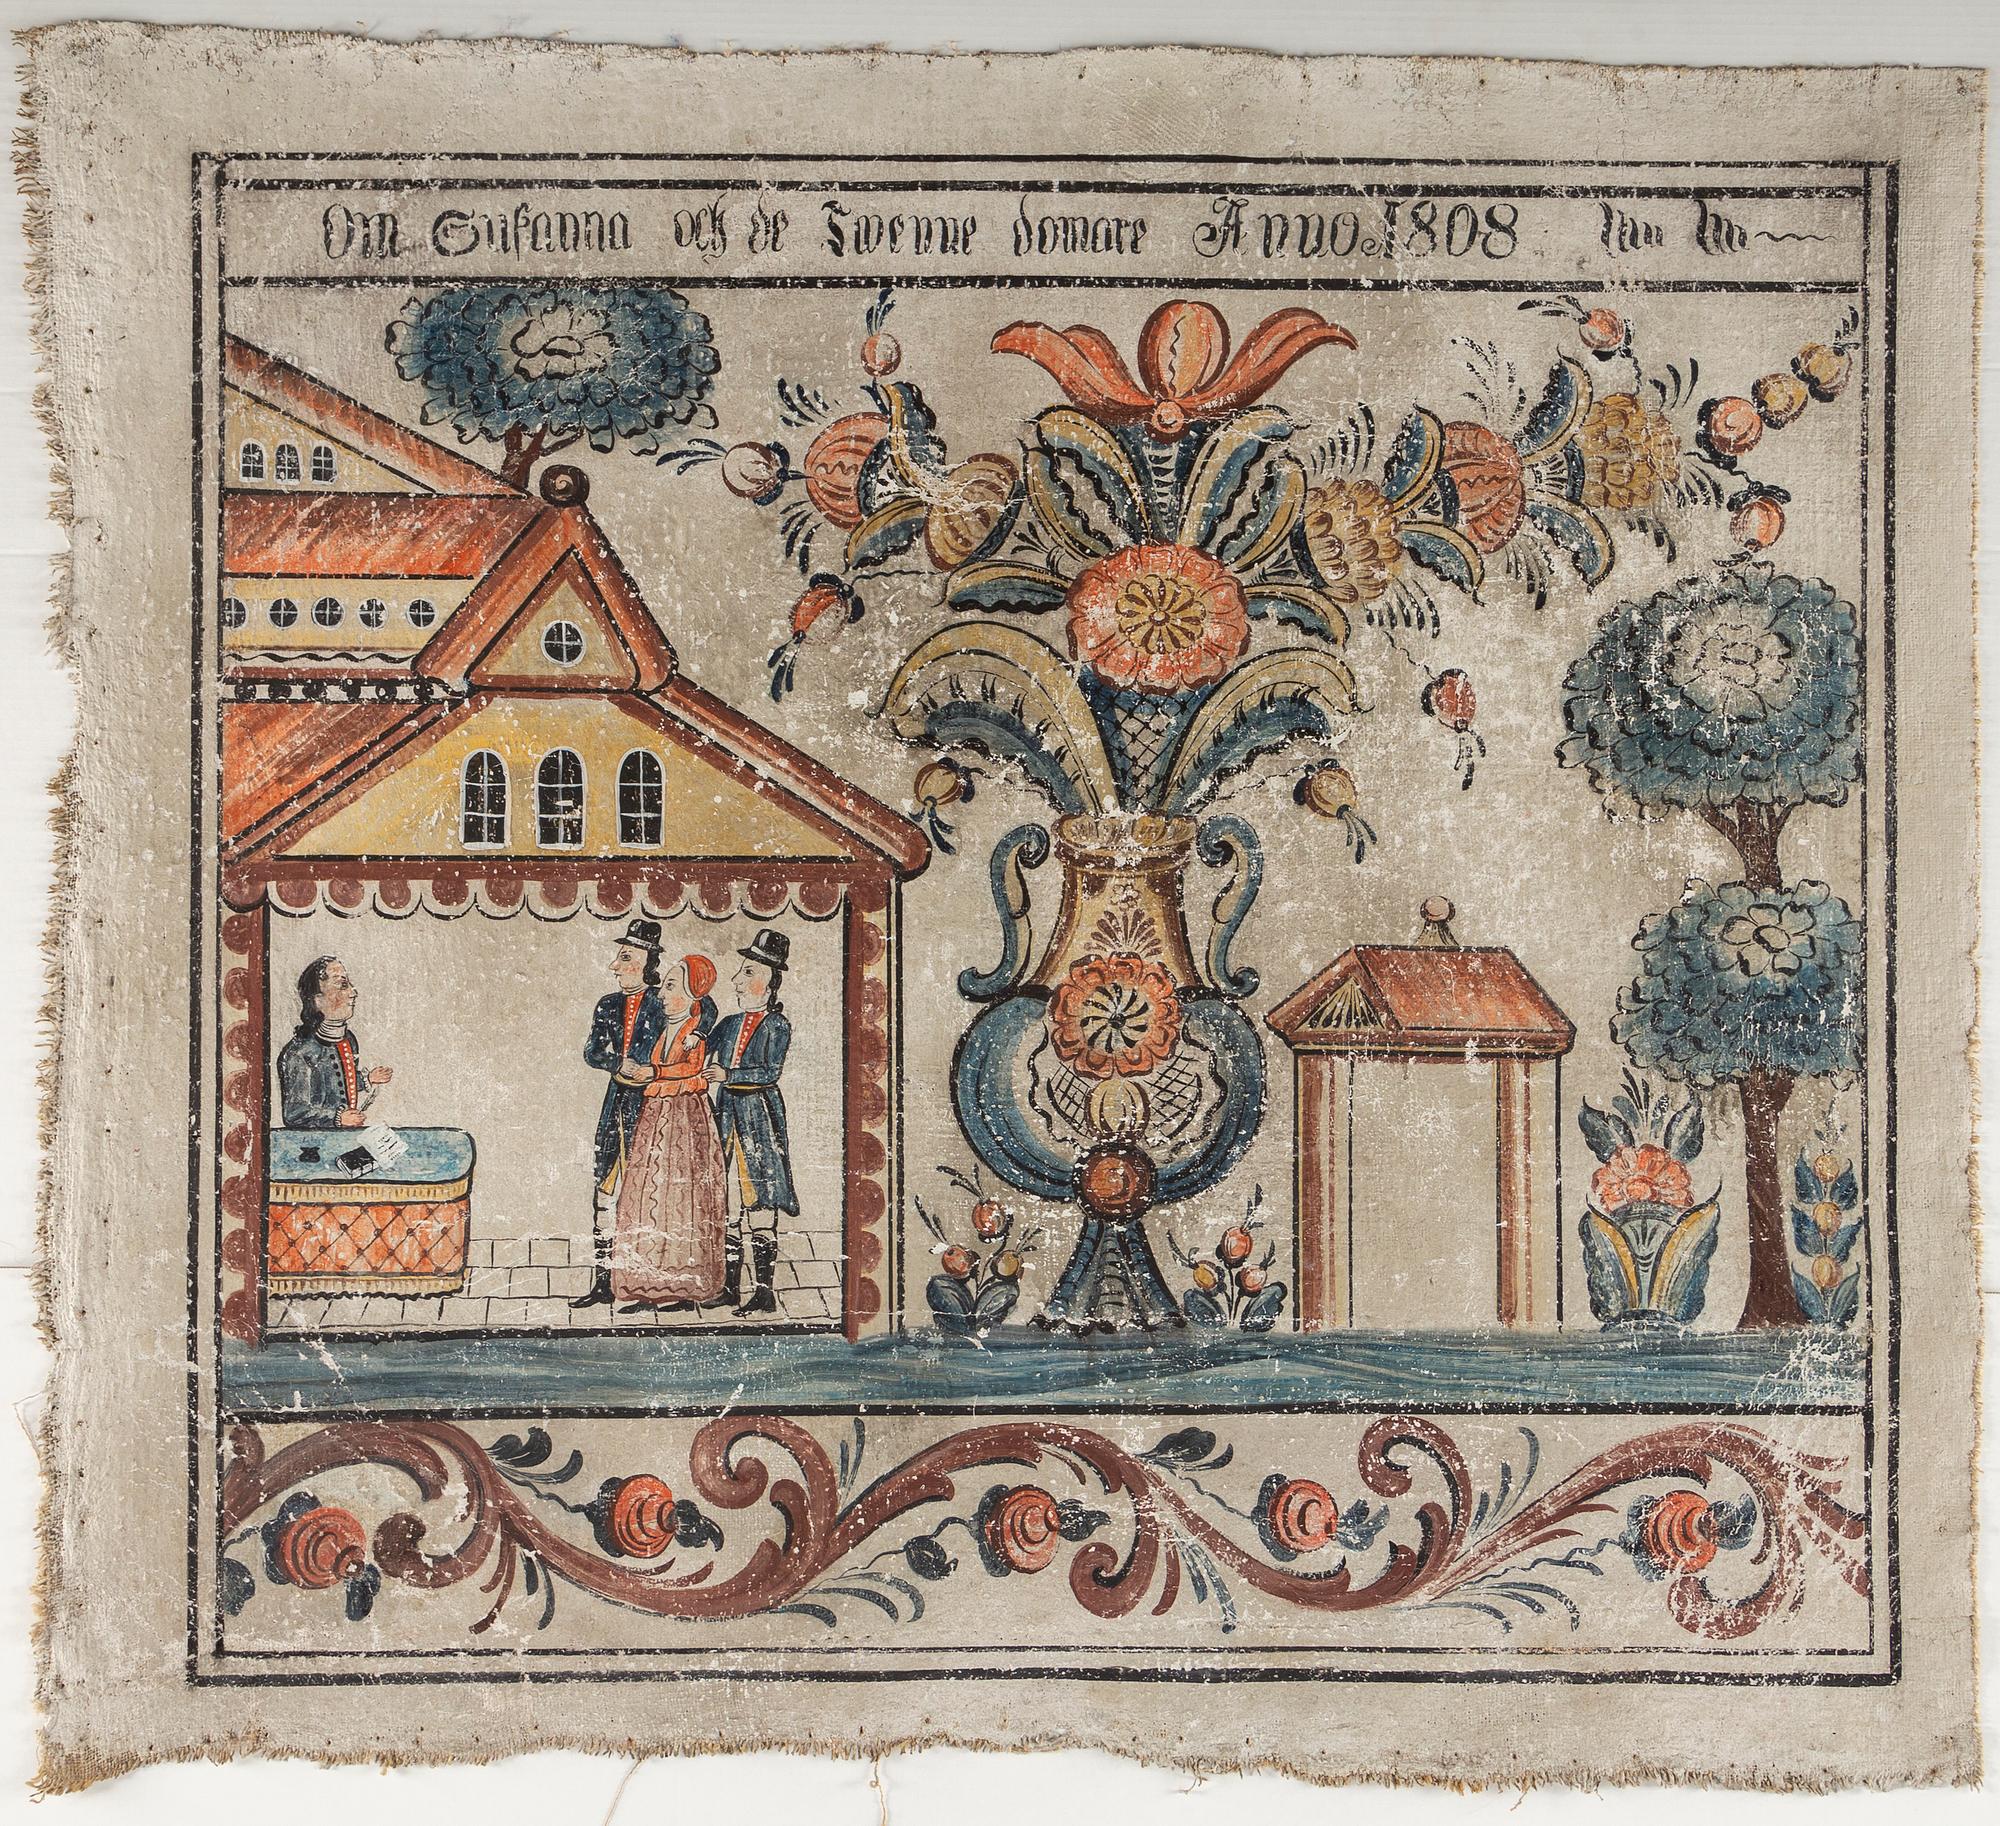 Om Susanna och de Twenne domare Anno 1808